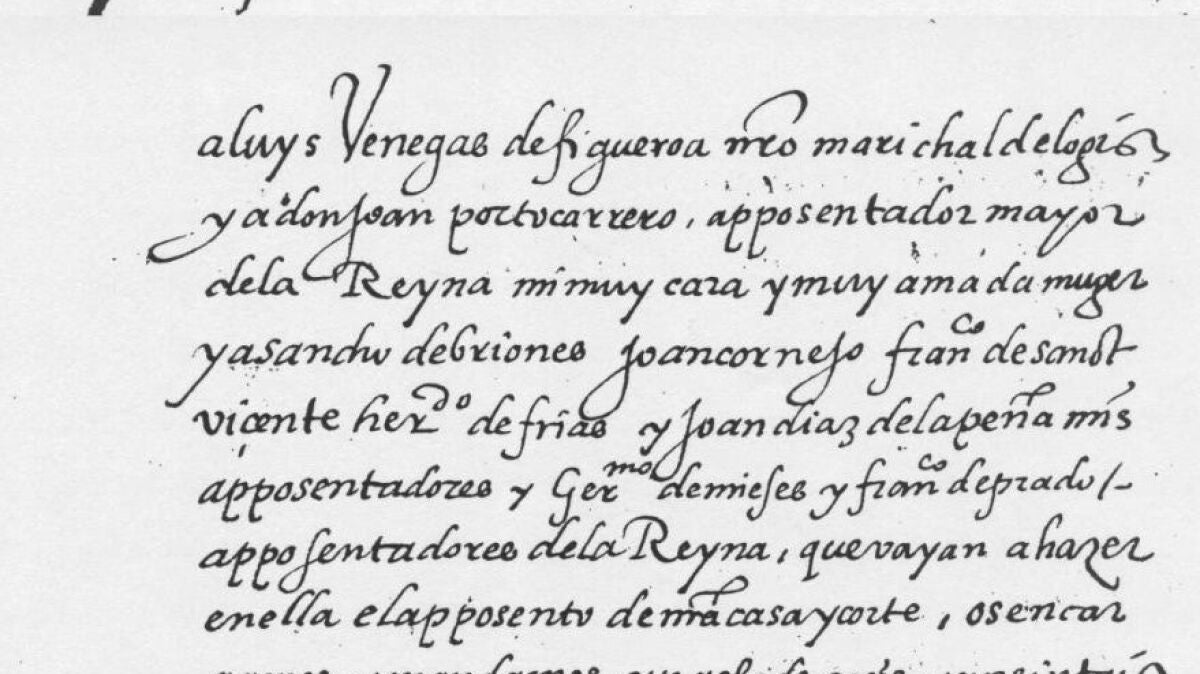 a luys Venegas de figueroa nr̃o marichal de logis
y a don Joan portocarrero, apposentador mayor
de la Reyna mi muy cara y muy amada muger
y a sancho de briones Joan cornejo fran^co de sanct
vicente her^do de frias y Joan diaz de la peña nr̃s
apposentadores y Ger^mo de mieses y fran^co de prado /-
apposentadores de la Reyna, que vayan a hazer
en ella el apposento de nr̃a casa y corte, os encar